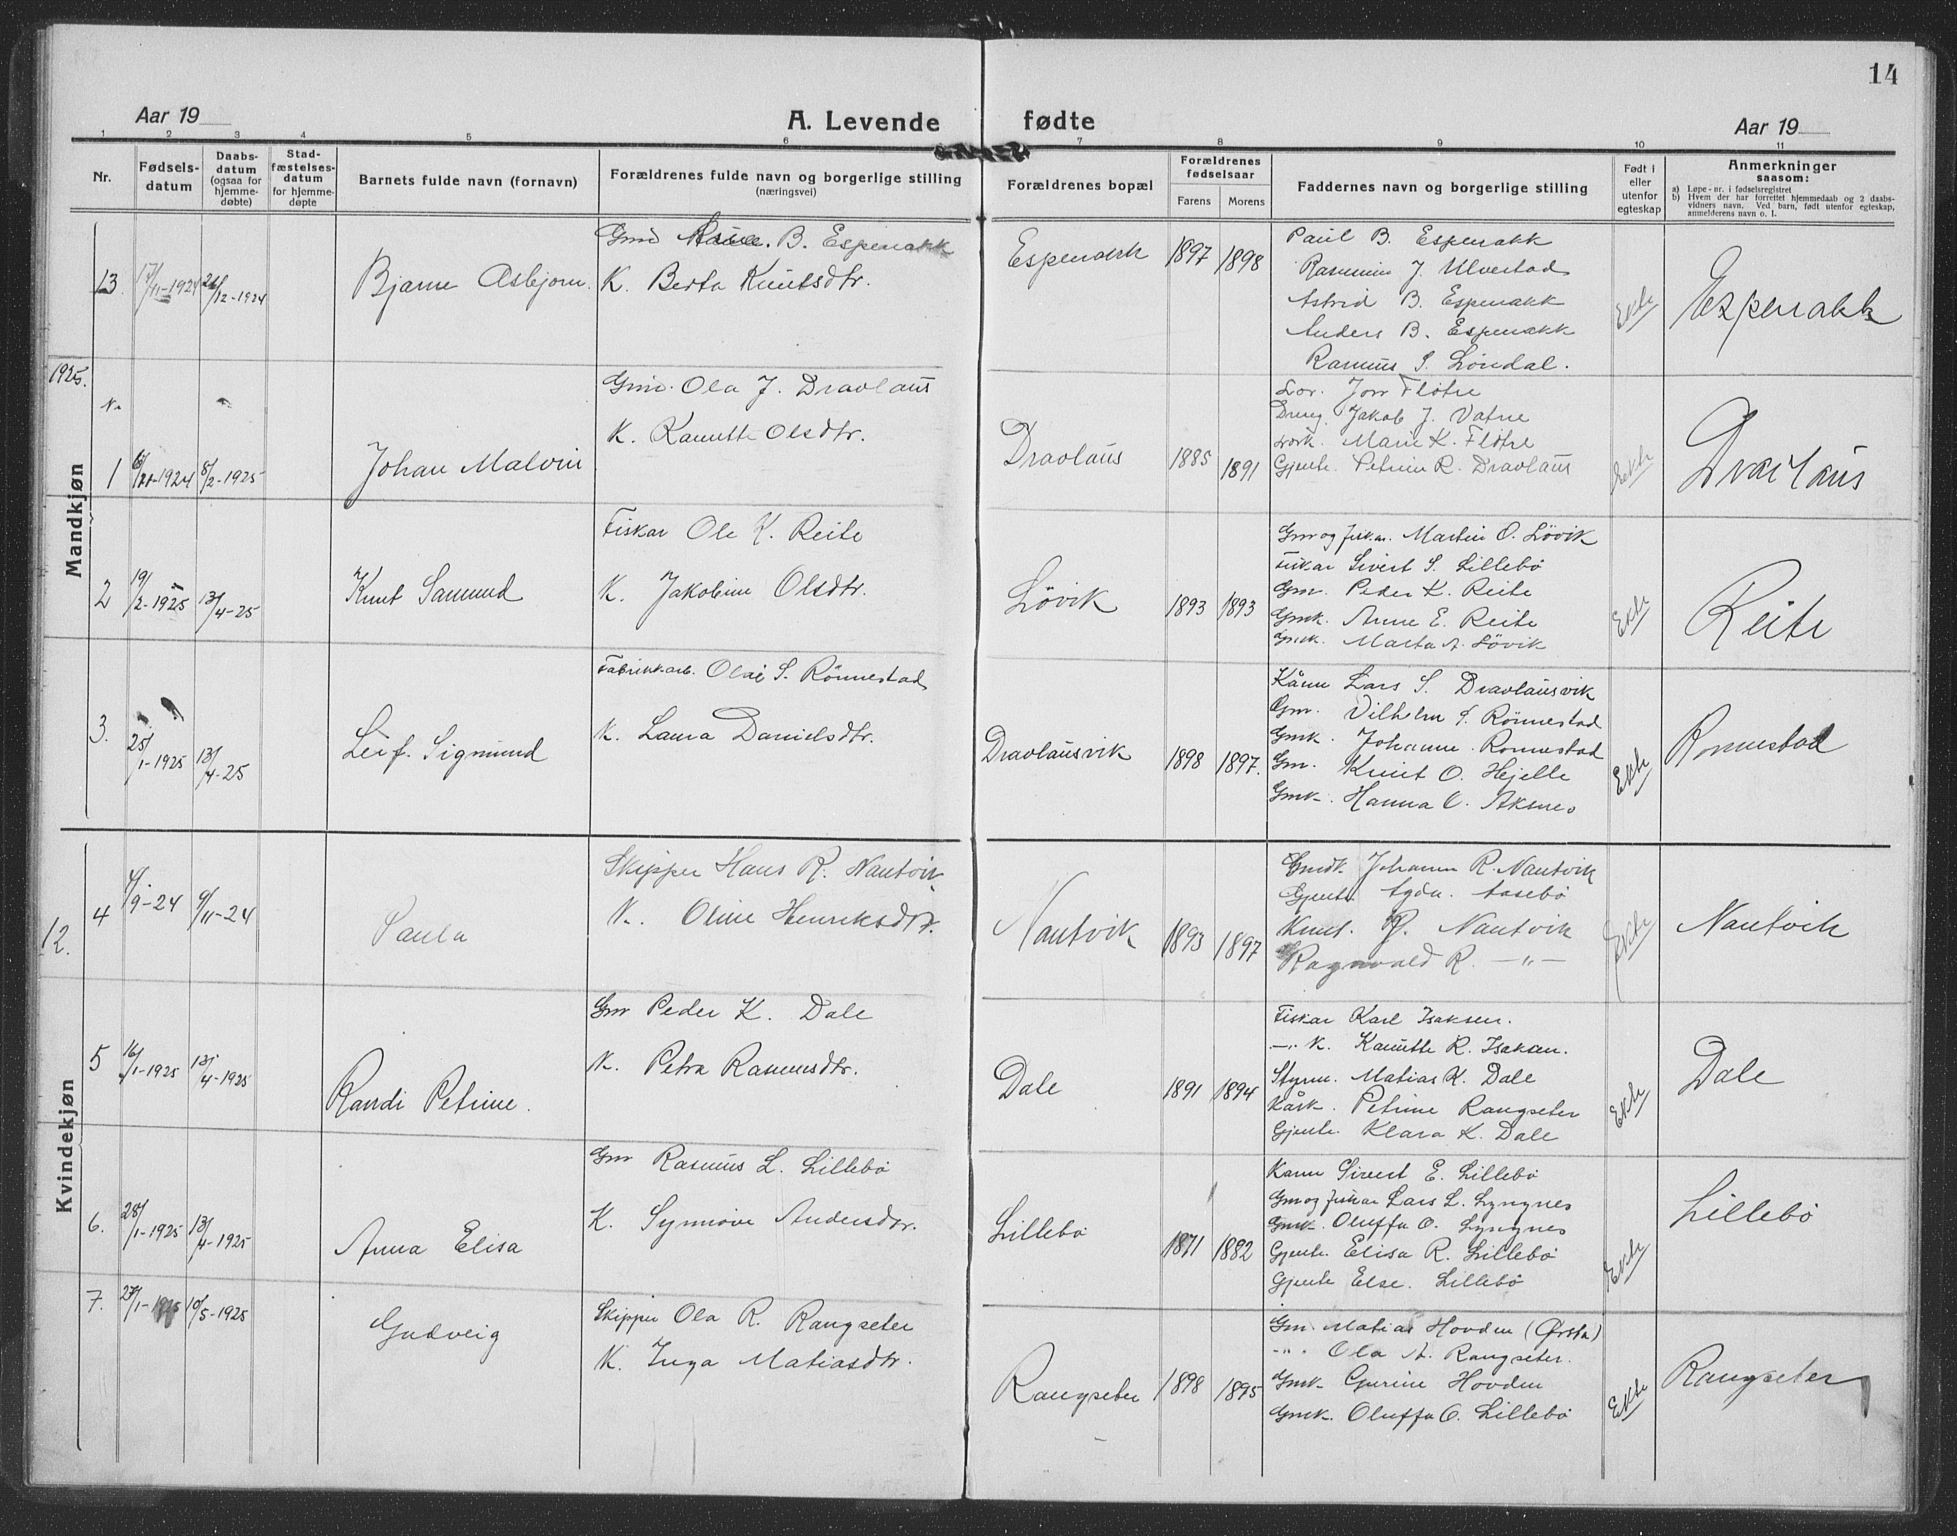 14
Aar 19
A. Levende fødte
Aar 19
1 2 3 4 5 6 7 8 9 10 11
Nr.
Fødsels-
datum
Daabs-
datum
(ogsaa for
hjemme-
døbte)
Stad-
fæstelses-
datum
for hjemme-
døpte
Barnets fulde navn (fornavn)
Forældrenes fulde navn og borgerlige stilling
(næringsvei)
Forældrenes bopæl
Forældrenes
fødselsaar
Farens Morens
Faddernes navn og borgerlige stilling
Født i
eller
utenfor
egteskap
Anmerkninger
saasom:
a) Løpe-nr. i fødselsregistret
b) Hvem der har forrettet hjemmedaab og 2 daabs-
vidners navn. Ved barn, født utenfor egteskap,
anmelderens navn o. l.
Mandkjøn
13. 17/11-1924 26/12-1924 Bjarne Asbjørn.
Gmd B. Espenakk
K. Berta Knutsdtr.
Espenakk 1897 1898
Paul B. Espenakk
Rasmine J. Ulvestad
Astrid B. Espenakk
Anders B. Espenakk
Rasmus S. Løndal.
Ekte
Espenakk
1925.
1 1924 8/2-1925 Johan Malvin
Gm. Ola J. Dravlaus
K. Kanutte Olsdtr.
Dravlaus 1885 1891
Fløtre
Dreng. Jakob J. Vatne
Marie K. Fløtre
Gjente. Petrine R. Dravlaus
Ekte
Dravlaus
2 19/2-1925 13/4-25 Knut Samund
Fiskar Ole K. Reite
K. Jakobine Olsdtr.
Løvik 1893 1893
Gm og fiskar. Martin O. Løvik
Fiskar Sivert S. Lillebø
Gm. Peder K. Reite
Gmk. Anne E. Reite
Gmk. Marta A. Løvik
Ekte
Reite
3. 25/1-1925 13/4-25 Leif. Sigmund
Fabrikkarb. Olai S. Rönnestad
K. Laura Danielsdtr.
Dravlausvik 1898 1897.
Kårm Lars S. Dravlausvik
Gm. Vilhelm S. Rönnestad
Gmk. Johanne Ronnestad
Gm. Knut O. Hjelle
Gmk. Hanna O. Aksnes
Ekte
Ronnestad
Kvindekjøn
12.
4 4/9-24 9/11-24 Paula
Skipper Hans R. Nautvik
K. Oline Henriksdtr.
Nautvik 1893 1897
Johanne R. Nautvik
Gjente Agda. Aasebø
Knut. R. Nautvik
Ragnvald R. —"—
Ekte
Nautvik
5 16/1-1925 13/4-1925 Randi Petrine.
Gm Peder K. Dale
K. Petra Rasmusdtr.
Dale 1891 1894
Fiskar Karl Isaksen.
—"- K. Kanutte R. Isaksen.
Styrm. Matias K. Dale
Kårk. Petrine Rangseter
Gjente. Klara K. Dale
Ekte
Dale
6. 28/1-1925 13/4-1925 Anna Elisa
Gm Rasmus L. Lillebø
K. Synnøve Andersdtr.
Lillebø 1871 1882
Kårm Sivert E. Lillebø
Gm og fiskar Lars L. Lyngnes
Gmk. Oluffa O. Lyngnes
Gjente. Elisa R. Lillebø
Gjente Else. Lillebø
Ekte
Lillebø
7. 27/1-1925 10/5-1925 Gudveig
Skipper Ola R. Rangseter
K. Inga Matiasdtr.
Rangseter 1898 1895
Gm. Matias Hovden (Ørsta)
-"- Ola A. Rangseter.
Gmk. Gurine Hovden
Gmk. Oluffa O. Lillebø
Ekte
Rangseter